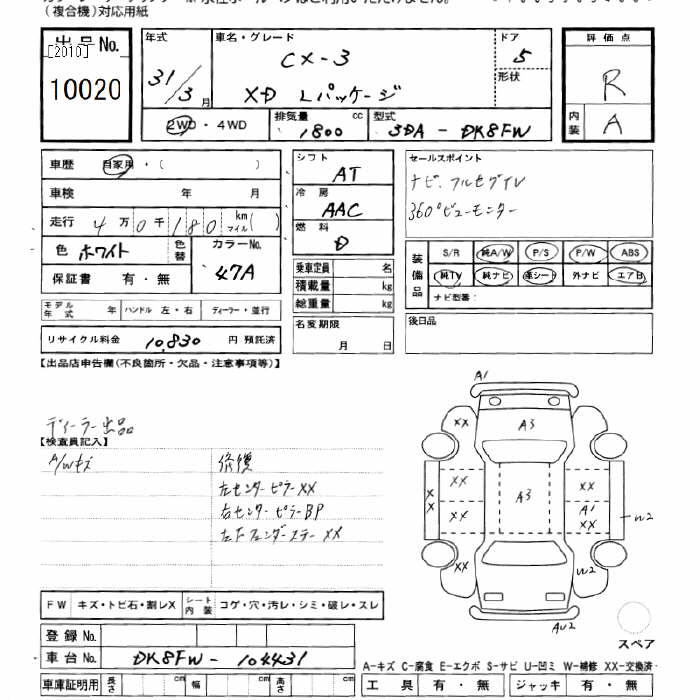 (複合機)対応用紙
出品No.
[2010]
10020
年式
31/3月
車名・グレード
CX-3
XD Lパッケージ
ドア
5
形状
評価点
R
内装
A
2WD・4WD
排気量
1800 cc
型式
3DA-DK8FW
車歴 自家用・( )
車検 年 月
走行 4万0千180 km マイル( )
色 ホワイト
色替
カラーNo.
47A
保証書 有・無
シフト
AT
冷房
AAC
燃料
D
乗車定員 名
積載量 kg
総重量 kg
セールスポイント
ナビ、フルセグTV
360°ビューモニター
装備品
S/R 純A/W P/S P/W ABS
純TV 純ナビ 革シート 外ナビ エアB
ナビ型番:
モデル年式 年 ハンドル 左・右 ディーラー・並行
リサイクル料金 10,830 円 預託済
名変期限
月 日
後日品
【出品店申告欄(不良箇所・欠品・注意事項等)】
ディーラー出品
【検査員記入】
A/Wキズ
修復
左センターピラーXX
右センターピラーBP
左Fフェンダーステー XX
A1
XX A3 XX
XX A3 XX
XX XX A1
XX W2
XX W2
AW2
スペア
FW キズ・トビ石・割レX シート内装 コゲ・穴・汚レ・シミ・破レ・スレ
登録No.
車台No. DK8FW-104431
A-キズ C-腐食 E-エクボ S-サビ U-凹ミ W-補修 XX-交換済
車庫証明用 長さ cm 幅 cm 高さ cm
工具 有・無 ジャッキ 有・無